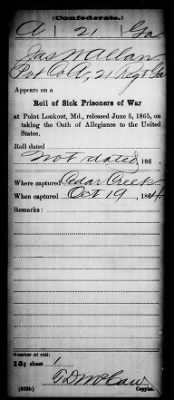 (Confederate.)
A 21 Ga
Jas W Allan
Pvt Co A, 21 Regt Ga
Appears on a
Roll of Sick Prisoners of War
at Point Lookout, Md., released June 5, 1865, on
taking the Oath of Allegiance to the United
States.
Roll dated
not dated, 186 .
Where captured Cedar Creek
When captured Oct 19, 1864
Remarks:
Number of roll:
sheet 1
Copyist.